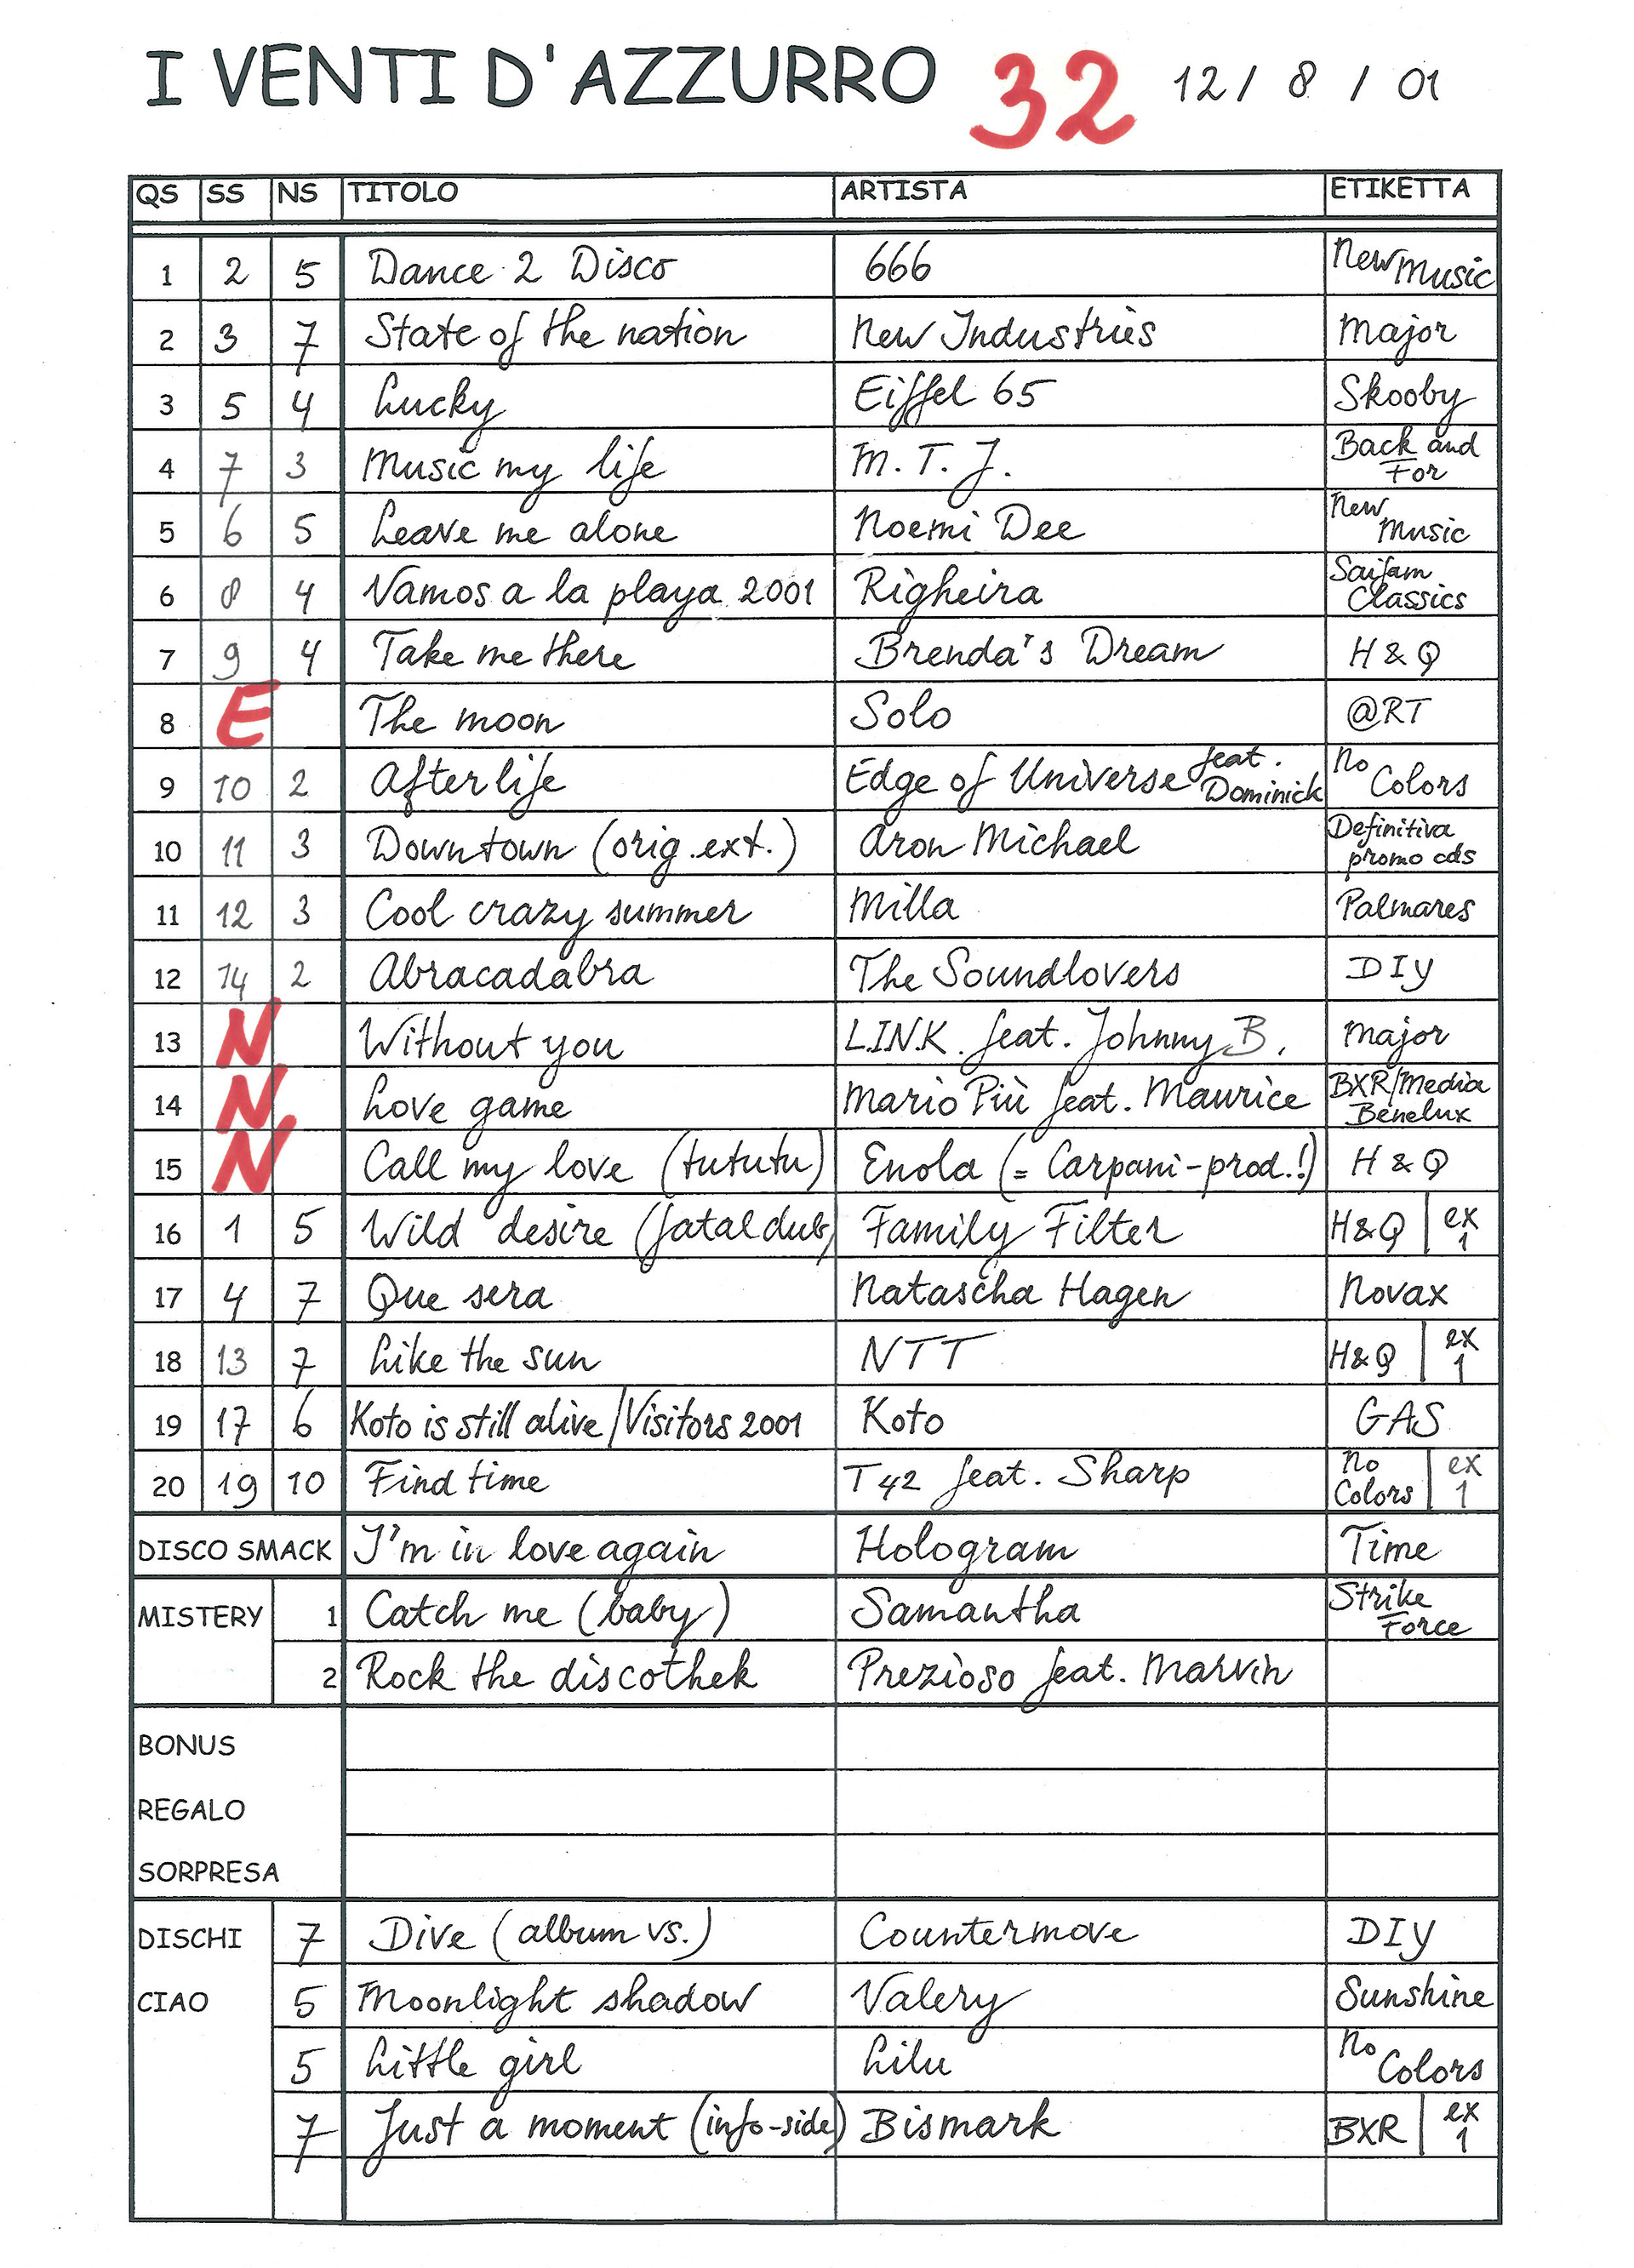 I VENTI D'AZZURRO 32 12/8/01
QS SS NS TITOLO ARTISTA ETIKETTA
1 2 5 Dance 2 Disco 666 New Music
2 3 7 State of the nation New Industries Major
3 5 4 Lucky Eiffel 65 Skooby
4 7 3 Music my life M.T.J. Back and For
5 6 5 Leave me alone Noemi Dee New Music
6 8 4 Vamos a la playa 2001 Righeira Saifam Classics
7 9 4 Take me there Brenda's Dream H&Q
8 E The moon Solo @RT
9 10 2 Afterlife Edge of Universe feat. Dominick No Colors
10 11 3 Downtown (orig.ext.) Aron Michael Definitiva promo cds
11 12 3 Cool crazy summer Milla Palmares
12 14 2 Abracadabra The Soundlovers DIY
13 N Without you L.I.N.K. feat. Johnny B. Major
14 N Love game Mario Più feat. Maurice BXR/Media Benelux
15 N Call my love (tututu) Enola (= Carpani-prod.!) H&Q
16 1 5 Wild desire (fatal dub) Family Filter H&Q ex 1
17 4 7 Que sera Natascha Hagen Novax
18 13 7 Like the sun NTT H&Q ex 1
19 17 6 Koto is still alive/Visitors 2001 Koto GAS
20 19 10 Find time T42 feat. Sharp No Colors ex 1
DISCO SMACK I'm in love again Hologram Time
MISTERY 1 Catch me (baby) Samantha Strike Force
2 Rock the discothek Prezioso feat. Marvin
BONUS
REGALO
SORPRESA
DISCHI 7 Dive (album vs.) Countermove DIY
CIAO 5 Moonlight shadow Valery Sunshine
5 Little girl Lilu No Colors
7 Just a moment (info-side) Bismark BXR ex 1